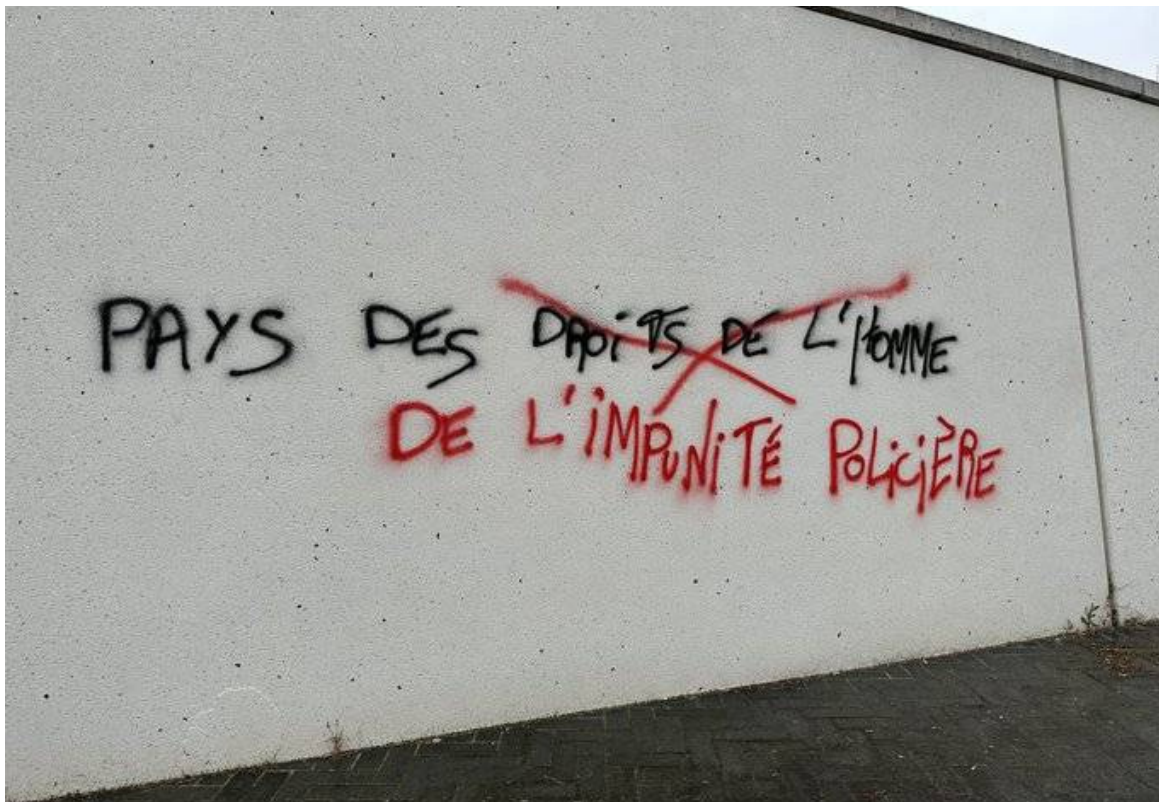 PAYS DES DROITS DE L'HOMME
DE L'IMPUNITÉ POLICIÈRE